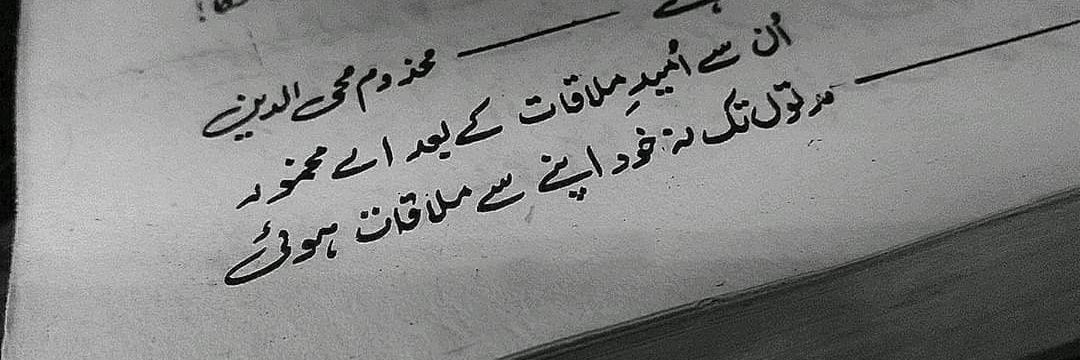 ہے
مخدوم محی الدین
اُن سے اُمیدِ ملاقات کے بعد اے مخمور
مدتوں تک نہ خود اپنے سے ملاقات ہوئی